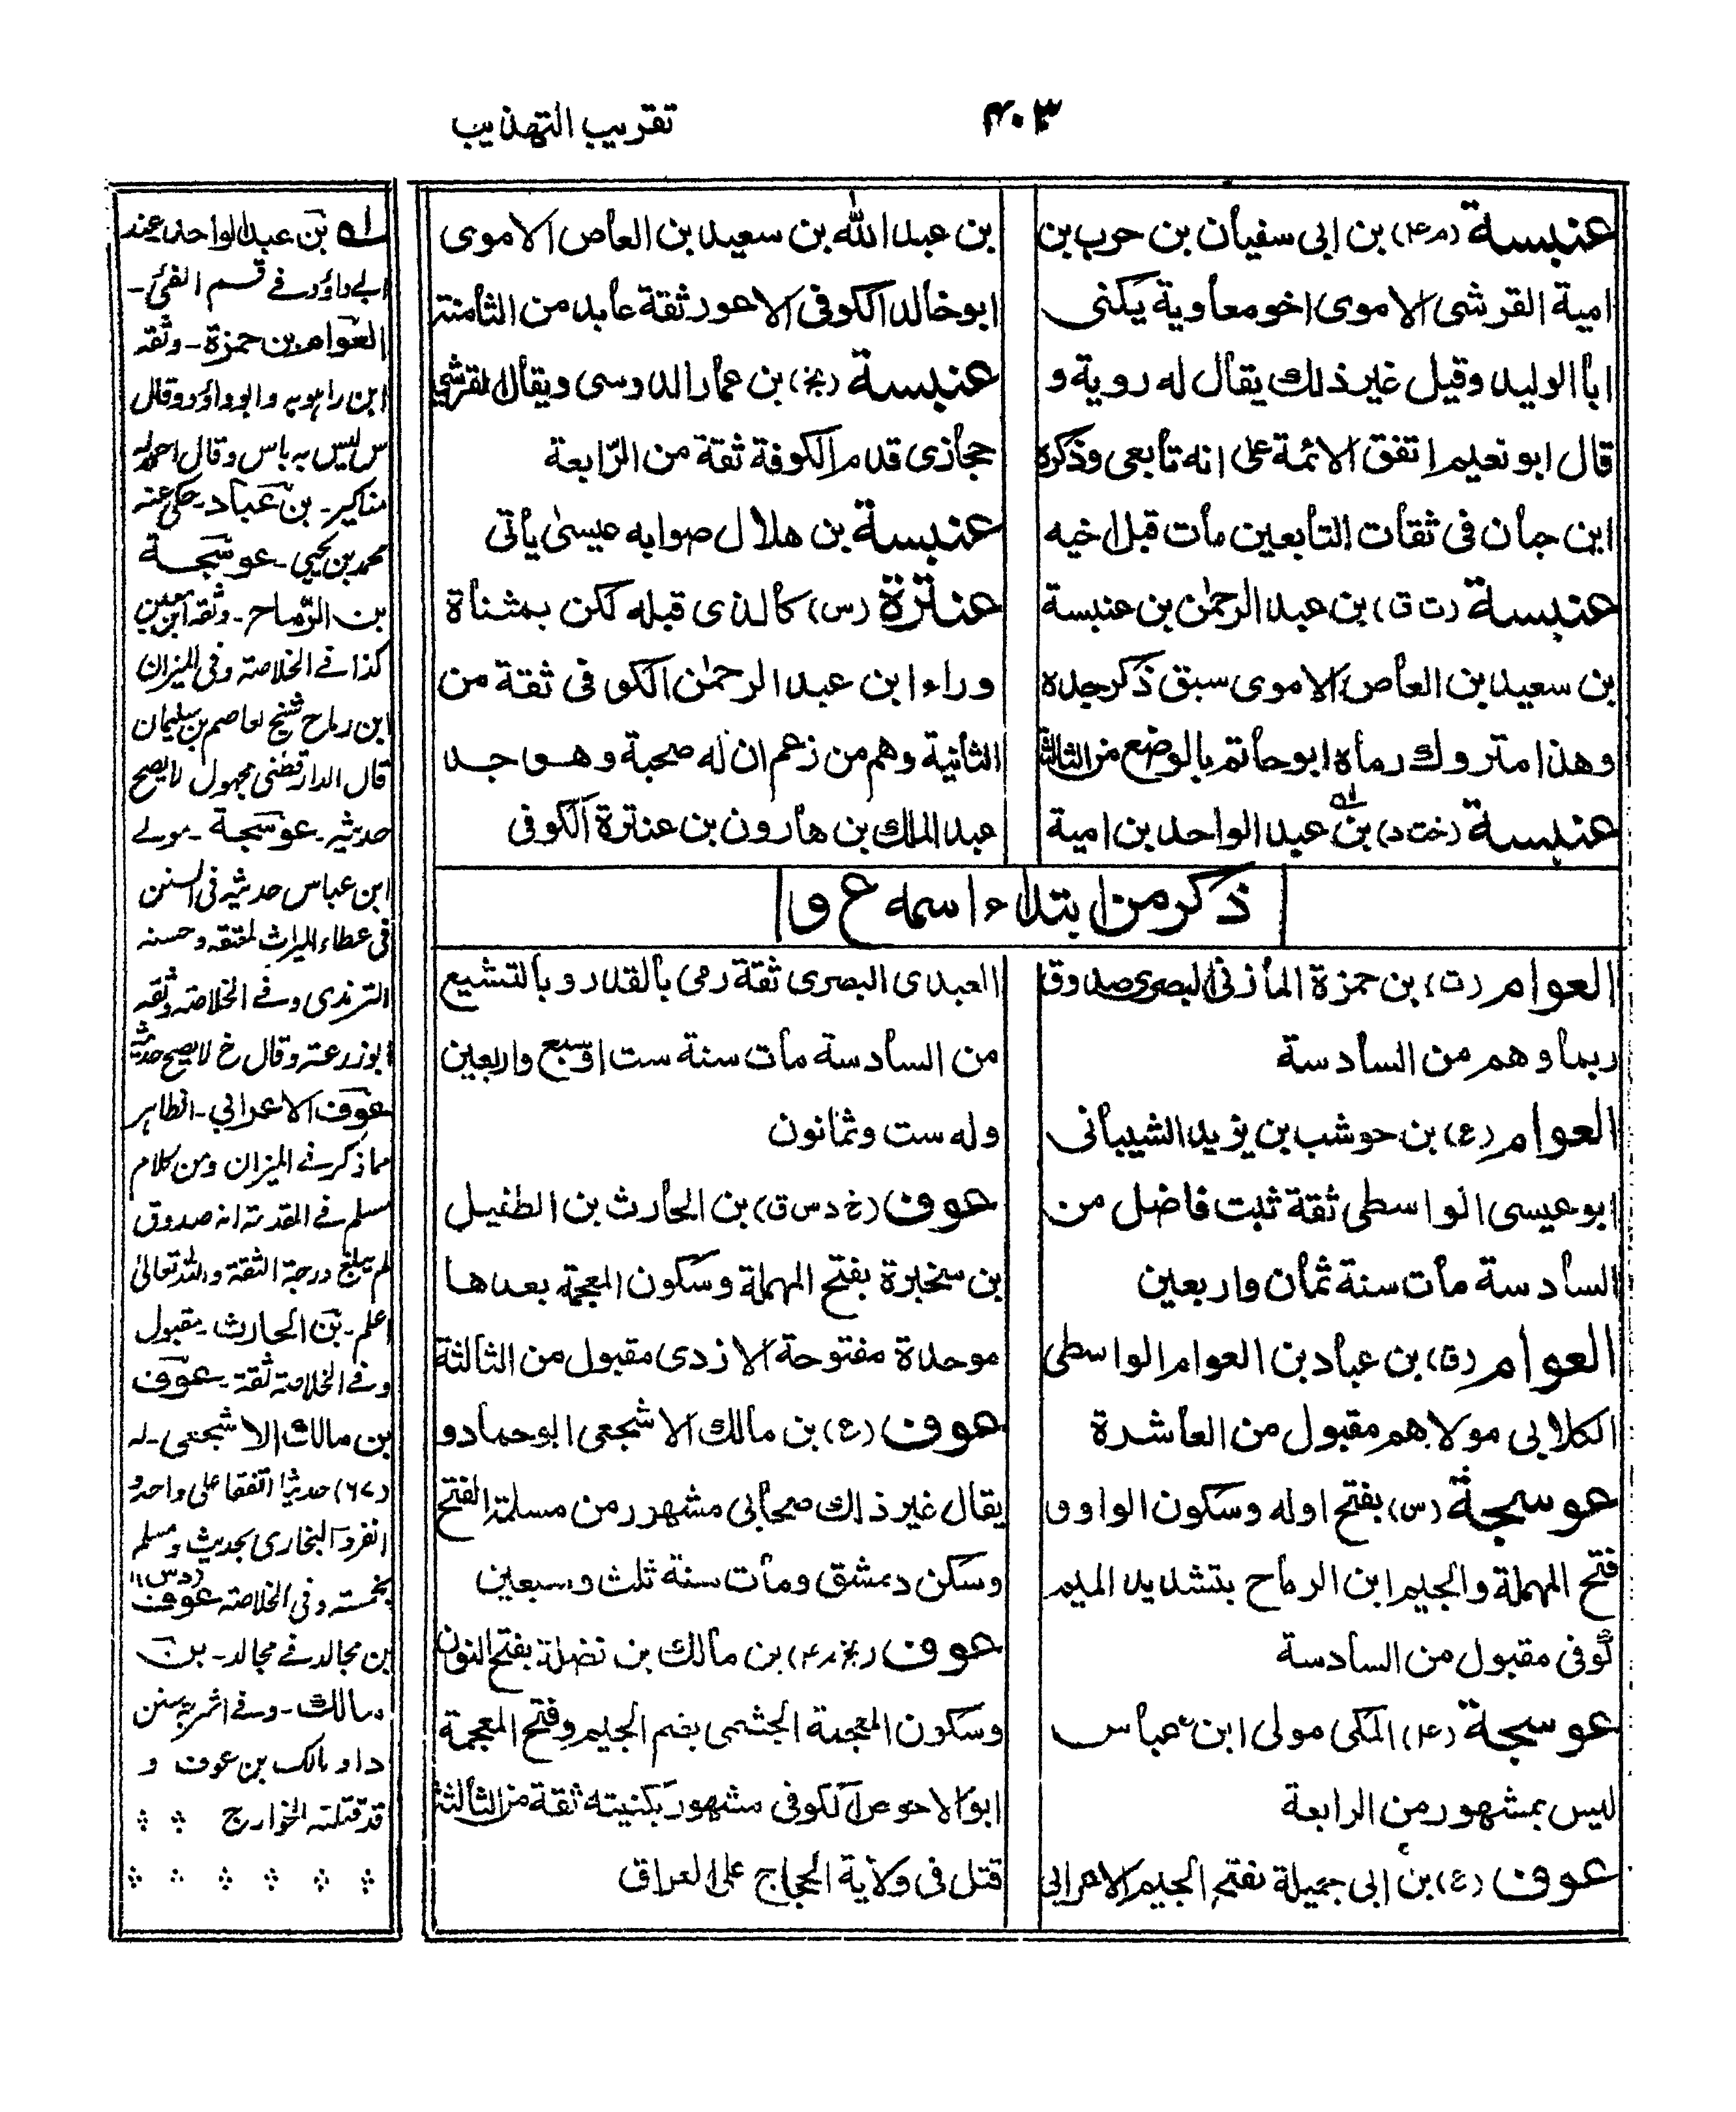 ٤٠٣
تقريب التهذيب
عنبسة (م ٤) بن ابى سفيان بن حرب بن
امية القرشى الاموى اخو معاوية يكنى
ابا الوليد وقيل غير ذلك يقال له روية و
قال ابو نعيم اتفق الائمة على انه تابعى وذكره
ابن حبان فى ثقات التابعين مات قبل اخيه
عنبسة (ت ق) بن عبد الرحمٰن بن عنبسة
بن سعيد بن العاص الاموى سبق ذكر جده
وهذا متروك رماه ابو حاتم بالوضع من الثالثة
عنبسة (خت د) بن عبد الواحد بن امية
بن عبد الله بن سعيد بن العاص الاموى
ابو خالد الكوفى الاعور ثقة عابد من الثامنة
عنبسة (بخ) بن عمار الدوسى ويقال القرشى
حجازى قدم الكوفة ثقة من الرّابعة
عنبسة بن هلال صوابه عيسىٰ يأتى
عنترة (س) كالذى قبله لكن بمثناة
وراء ابن عبد الرحمٰن الكوفى ثقة من
الثانية وهم من زعم ان له صحبة وهو جد
عبد الملك بن هارون بن عنترة الكوفى
ذكر من ابتداء اسمه ع و
العوام (ت) بن حمزة المازنى البصرى صدوق
ربما وهم من السادسة
العوام (ع) بن حوشب بن يزيد الشيبانى
ابو عيسى الواسطى ثقة ثبت فاضل من
السادسة مات سنة ثمان واربعين
العوام (ق) بن عباد بن العوام الواسطى
الكلابى مولاهم مقبول من العاشرة
عوسجة (س) بفتح اوله وسكون الواو و
فتح المهملة والجيم ابن الرماح بتشديد الميم
كوفى مقبول من السادسة
عوسجة (٤) المكى مولى ابن عباس
ليس بمشهور من الرابعة
عوف (ع) بن ابى جميلة بفتح الجيم الاعرابى
العبدى البصرى ثقة رمى بالقدر وبالتشيع
من السادسة مات سنة ست او سبع واربعين
وله ست وثمانون
عوف (خ د س ق) بن الحارث بن الطفيل
بن سخبرة بفتح المهملة وسكون المعجمة بعدها
موحدة مفتوحة الازدى مقبول من الثالثة
عوف (ع) بن مالك الاشجعى ابو حماد و
يقال غير ذلك صحابى مشهور من مسلمة الفتح
وسكن دمشق ومات سنة ثلث وسبعين
عوف (بخ م ٤) بن مالك بن نضلة بفتح النون
وسكون المعجمة الجشمى بضم الجيم وفتح المعجمة
ابو الاحوص الكوفى مشهور بكنيته ثقة من الثالثة
قتل فى ولاية الحجاج على العراق
له بن عبد الواحد عند
ابى داؤد فے قسم الفئ ـ
العوام بن حمزة ـ وثقه
ابن راهويه وابوداؤد وقال
س ليس به باس وقال احمد له
مناكير ـ بن عباد ـ حكى عنه
محمد بن يحيى ـ عوسجة
بن الرّماح ـ وثقه ابن معين
كذا فے الخلاصة وفى الميزان
ابن رماح شيخ لعاصم بن سليمان
قال الدارقطنى مجهول لا يصح
حديثه ـ عوسجة ـ مولے
ابن عباس حديثه فى السنن
فى عطاء الميراث لمعتقه وحسنه
الترمذى وفے الخلاصة وثقه
ابوزرعة وقال خ لا يصح حديثه
عوف الاعرابي ـ الظاهر
مما ذكر فے الميزان ومن كلام
مسلم فے المقدمة انه صدوق
لم يبلغ درجة الثقة والله تعالىٰ
اعلم ـ بن الحارث ـ مقبول
وفے الخلاصة ثقة ـ عوف
بن مالك الاشجعى ـ له
(٦٧) حديثا اتفقا على واحد و
انفرد البخارى بحديث ومسلم
بخمسة وفى الخلاصة عوف (د س)
بن مجالد فے مجالد ـ بن
مالك ـ وفے اشربة سنن
داو مالك بن عوف و
قد قتلته الخوارج